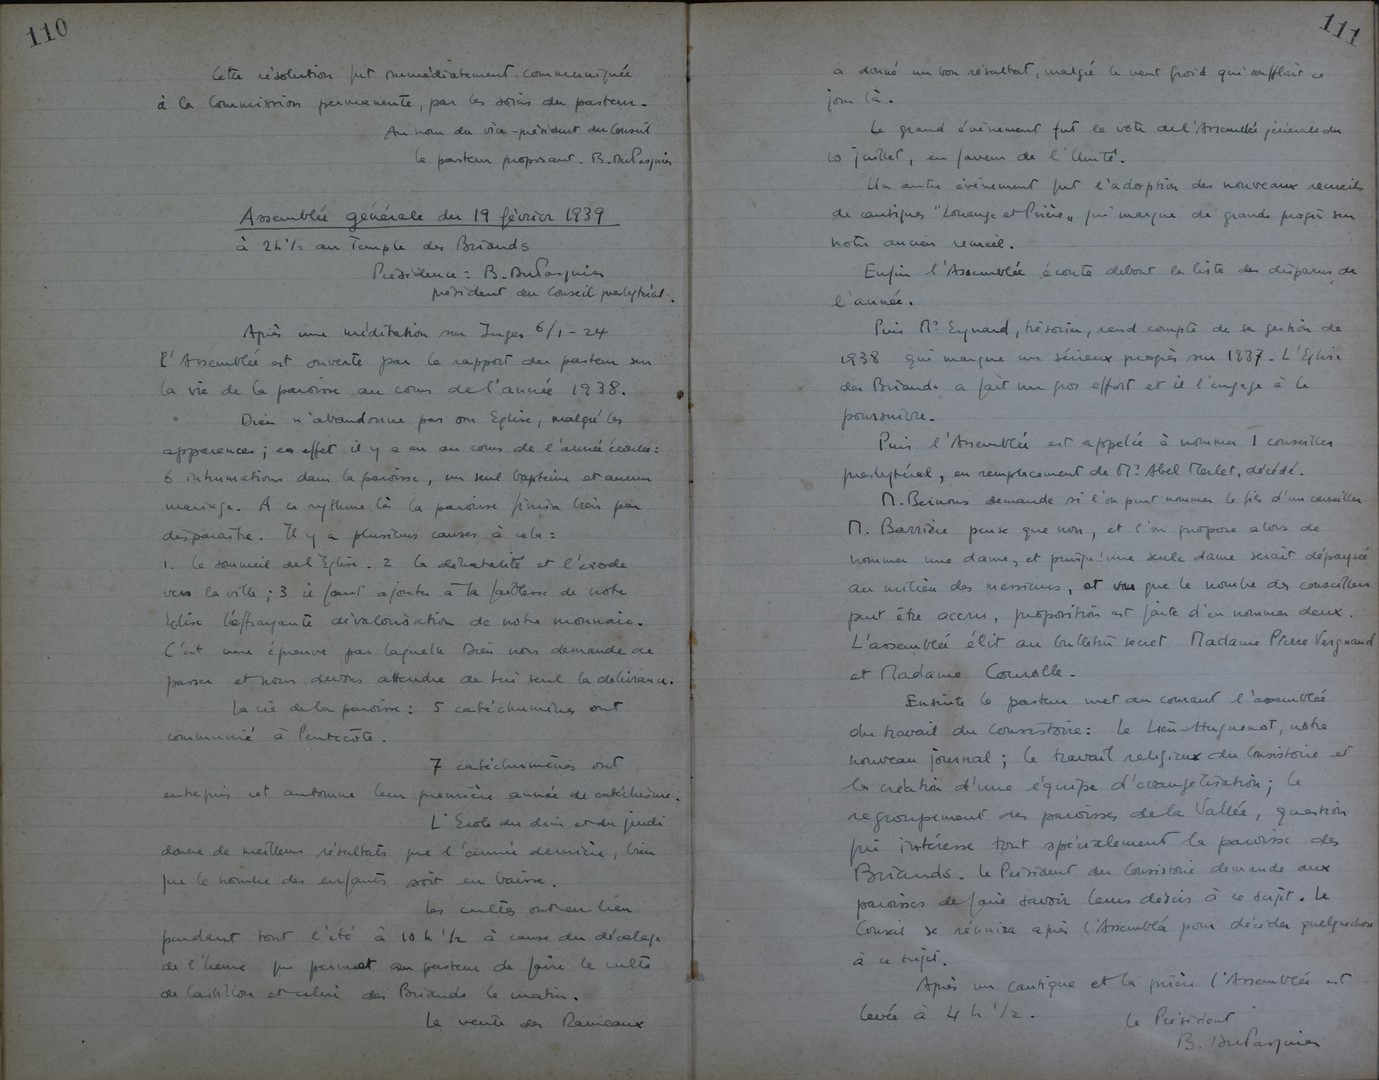 110
Cette résolution fut immédiatement communiquée
à la Commission permanente, par les soins du pasteur.
Au nom du vice-président du Conseil
le pasteur proposant. B. DuPasquier
Assemblée générale du 19 février 1939
à 2h 1/2 au Temple des Briands
Présidence : B. DuPasquier
président du Conseil presbytéral.
Après une méditation sur Juges 6/1-24
l'Assemblée est ouverte par le rapport du pasteur sur
la vie de la paroisse au cours de l'année 1938.
Dieu n'abandonne pas son Eglise, malgré les
apparences ; en effet il y a eu au cours de l'année écoulée :
6 inhumations dans la paroisse, un seul baptème et aucun
mariage. A ce rythme là la paroisse finira bien par
disparaître. Il y a plusieurs causes à cela :
1. le sommeil de l'Eglise. 2 la dénatalité et l'exode
vers la ville ; 3 il faut ajouter à la faiblesse de notre
Eglise l'effrayante dévalorisation de notre monnaie.
C'est une épreuve par laquelle Dieu nous demande de
passer et nous devons attendre de lui seul la délivrance.
La vie de la paroisse : 5 catéchumènes ont
communié à Pentecôte.
7 catéchumènes ont
entrepris cet automne leur première année de catéchisme.
L'Ecole du dim et du jeudi
donne de meilleurs résultats que l'année dernière, bien
que le nombre des enfants soit en baisse.
Les cultes ont eu lieu
pendant tout l'été à 10 h 1/2 à cause du décalage
de l'heure qui permet au pasteur de faire le culte
de Castillon et celui des Briands le matin.
La vente des Rameaux
111
a donné un bon résultat, malgré le vent froid qui soufflait ce
jour là.
Le grand événement fut le vote de l'Assemblée générale du
10 juillet, en faveur de l'Unité.
Un autre événement fut l'adoption des nouveaux recueils
de cantiques "Louange et Prière" qui marque de grands progrès sur
notre ancien recueil.
Enfin l'Assemblée écoute debout la liste des disparus de
l'année.
Puis Mr Eynard, trésorier, rend compte de sa gestion de
1938 qui marque un sérieux progrès sur 1937. L'Eglise
des Briands a fait un gros effort et il l'engage à le
poursuivre.
Puis l'Assemblée est appelée à nommer 1 conseiller
presbytéral, en remplacement de Mr Abel Merlet, décédé.
M. Bernous demande si l'on peut nommer le fils d'un conseiller
M. Barrière pense que non, et l'on propose alors de
nommer une dame, et puisqu'une seule dame serait dépaysée
au milieu des messieurs, et vu que le nombre des conseillers
peut être accru, proposition est faite d'en nommer deux.
L'assemblée élit au bulletin secret Madame Pierre Vergnaud
et Madame Courolle.
Ensuite le pasteur met au courant l'assemblée
du travail du Consistoire : le Lien-Huguenot, notre
nouveau journal ; le travail religieux du Consistoire et
la création d'une équipe d'évangélisation ; le
regroupement des paroisses de la Vallée, question
qui intéresse tout spécialement la paroisse des
Briands. Le Président du Consistoire demande aux
paroisses de faire savoir leurs désirs à ce sujet. Le
Conseil se réunira après l'Assemblée pour décider quelque chose
à ce sujet.
Après un cantique et la prière l'Assemblée est
levée à 4 h 1/2.
Le Président
B. DuPasquier